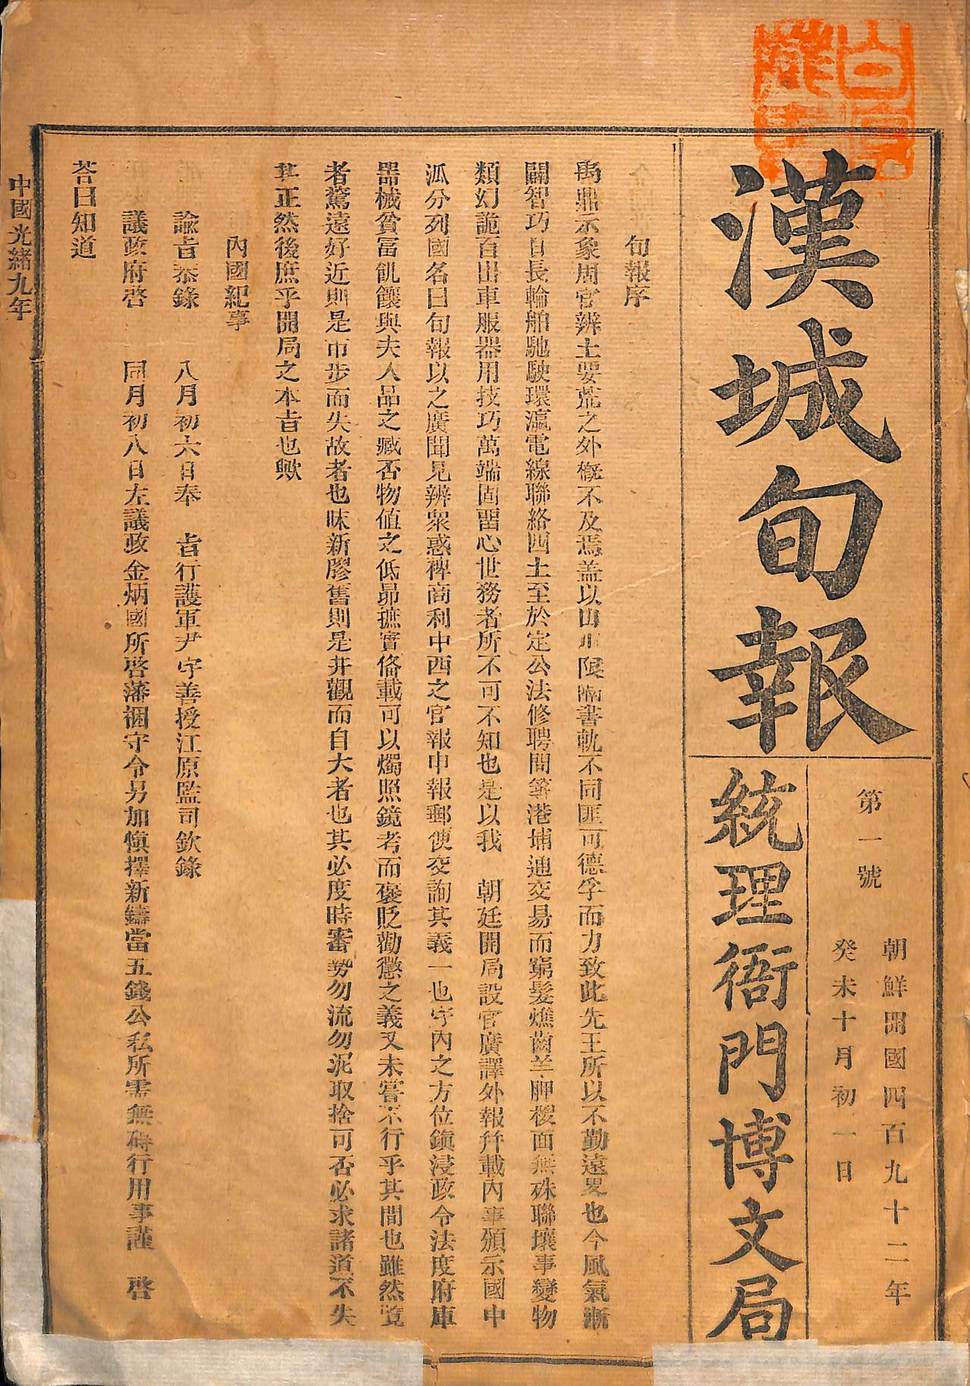 漢城旬報
第一號
朝鮮開國四百九十二年
癸未十月初一日
統理衙門博文局
旬報序
禹鼎示象周官辨土要荒之外槪不及焉盖以山川限隔書軌不同匪可德孚而力致此先王所以不勤遠畧也今風氣漸
闢智巧日長輪舶馳駛環瀛電線聯絡四土至於定公法修聘問築港埔通交易而窮髮燋齒羊胛椶面無殊聯壤事變物
類幻詭百出車服器用技巧萬端固留心世務者所不可不知也是以我 朝廷開局設官廣譯外報幷載內事頒示國中
派分列國名曰旬報以之廣聞見辨衆惑裨商利中西之官報申報郵便交詢其義一也宇內之方位鎭浸政令法度府庫
器械貧富飢饟與夫人品之臧否物值之低昻摭實俻載可以燭照鏡考而褒貶勸懲之義又未嘗不行乎其間也雖然覽
者騖遠好近則是市步而失故者也昧新膠舊則是井觀而自大者也其必度時審勢勿流勿泥取捨可否必求諸道不失
其正然後庶乎開局之本旨也歟
內國紀事
諭旨恭錄 八月初六日奉 旨行護軍尹守善授江原監司欽錄
議政府啓 同月初八日左議政金炳國所啓藩梱守令另加愼擇新鑄當五錢公私所需無碍行用事謹 啓
荅曰知道
中國光緖九年